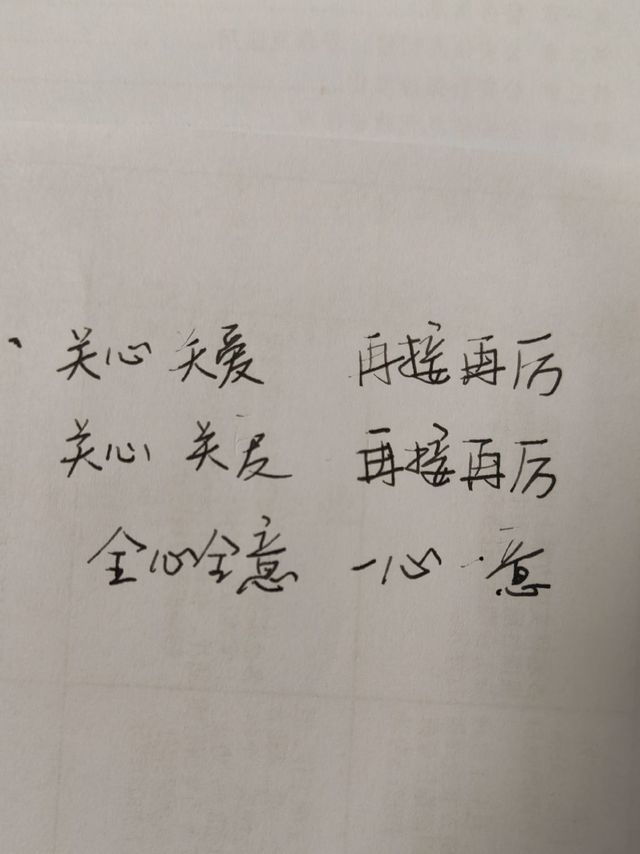 关心 关爱 再接再厉
关心 关友 再接再厉
全心全意 一心一意